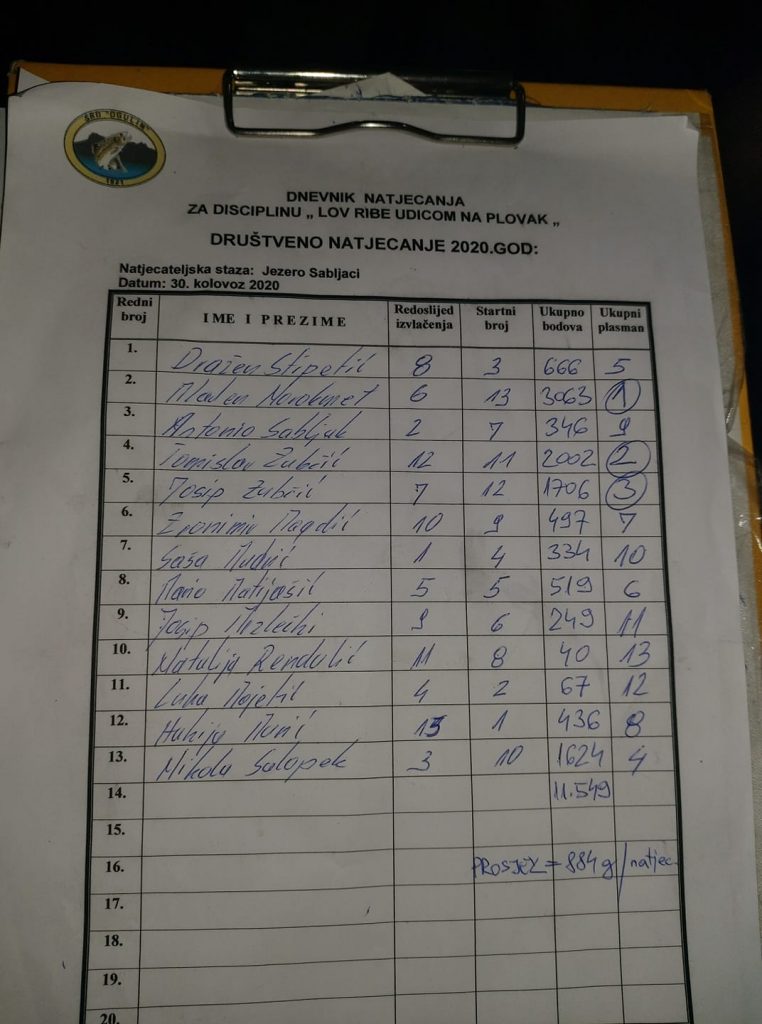 ŠRD "OGULIN"
1921
DNEVNIK NATJECANJA
ZA DISCIPLINU „ LOV RIBE UDICOM NA PLOVAK „
DRUŠTVENO NATJECANJE 2020.GOD:
Natjecateljska staza: Jezero Sabljaci
Datum: 30. kolovoz 2020
Redni broj IME I PREZIME Redoslijed izvlačenja Startni broj Ukupno bodova Ukupni plasman
1. Dražen Stipetić 8 3 666 5
2. Mladen 6 13 3063 1
3. Antonio Sabljak 2 7 346 9
4. Tomislav Zubčić 12 11 2002 2
5. Josip Zubčić 7 12 1706 3
6. Magdić 10 9 497 7
7. Saša 1 4 334 10
8. Mario Matijašić 5 5 519 6
9. Josip 9 6 249 11
10. Matulija Rendulić 11 8 40 13
11. Luka 4 2 67 12
12. 13 1 436 8
13. Nikola Salopek 3 10 1624 4
14. 11.549
15.
16. PROSJEK = 884 g/natjec.
17.
18.
19.
20.